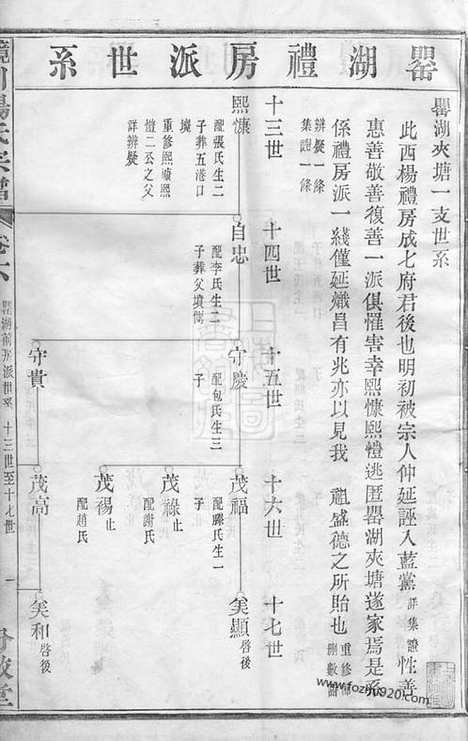 罌湖禮房派世系
罌湖夾塘一支世系
此西楊禮房成七府君後也明初被宗人仲延誣入藍黨詳集證性善
惠善敬善復善一派俱罹害幸熙慷熙憻逃匿罌湖夾塘遂家焉是系
係禮房派一綫僅延熾昌有兆亦以見我 祖盛德之所貽也
辨疑一條
集證一條
十三世
十四世
十五世
十六世
十七世
熙慷
配張氏生二
子葬五港口
境
重修熙續熙
憻二公之父
詳辨疑
自忠
配李氏生二
子葬父墳
守慶
配包氏生三
子
守貴
茂福
配滕氏生一
子
茂祿止
配謝氏
茂褐止
配趙氏
茂高
美顯啓後
美和啓後
鏡川楊氏宗譜
卷六
十三世至十七世
一
www.fozhu920.com